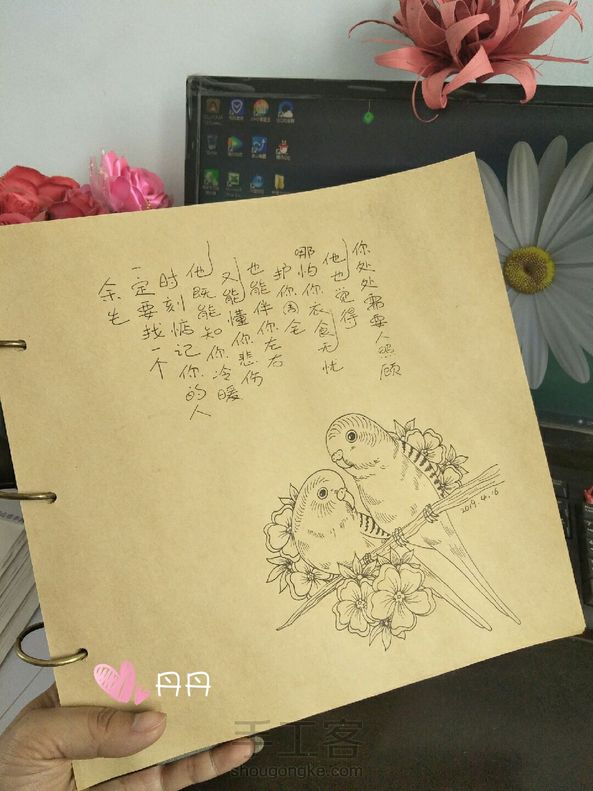 余生
一定要找一个
时刻惦记你的人
他既能知你冷暖
又能懂你悲伤
也能伴你左右
护你周全
哪怕你衣食无忧
他也觉得
你处处需要人照顾
2019.4.16
丹丹
手工客
shougongke.com